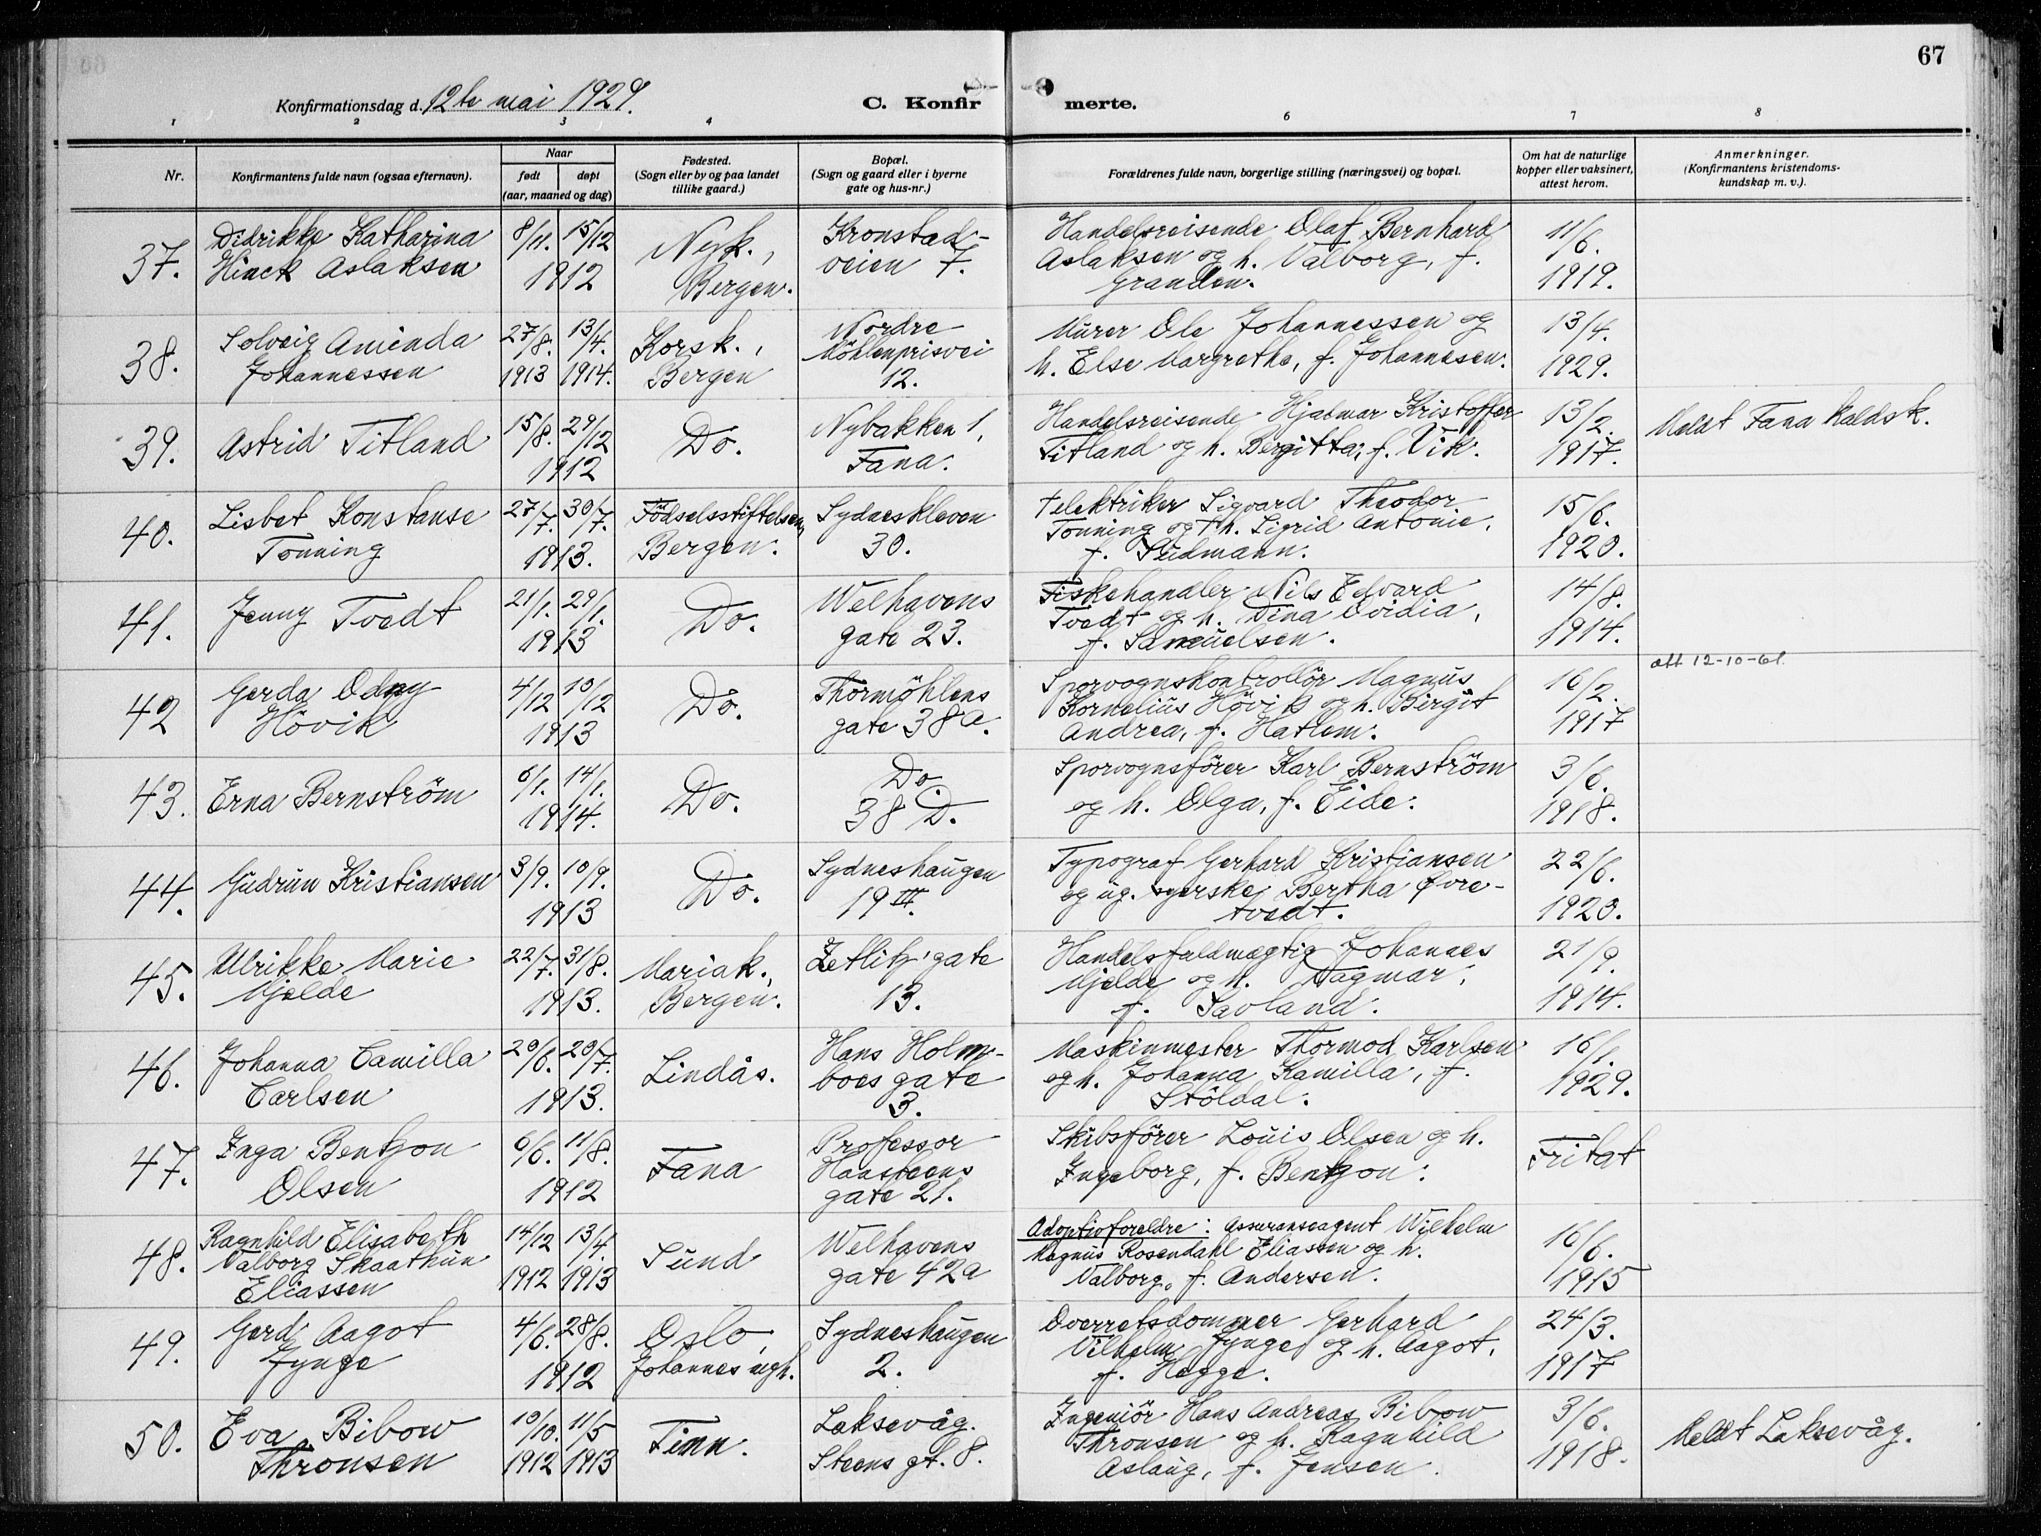 67
Konfirmationsdag d. 12te mai 1929.
C. Konfirmerte.
1 2 3 4 6 7 8
Nr.
Konfirmantens fulde navn (ogsaa efternavn).
Naar
født
døpt
(aar, maaned og dag)
Fødested.
(Sogn eller by og paa landet
tillike gaard.)
Bopæl.
(Sogn og gaard eller i byerne
gate og hus-nr.)
Forældrenes fulde navn, borgerlige stilling (næringsvei) og bopæl.
Om hat de naturlige
kopper eller vaksinert,
attest herom.
Anmerkninger.
(Konfirmantens kristendoms-
kundskap m. v.).
37.
Didrikke Katharina
Hinck Aslaksen
8/11. 15/12
1912
Nyk.,
Bergen.
Kronstad-
veien 7.
Handelsreisende Olaf Bernhard
Aslaksen og h. Valborg, f.
Granden.
11/6.
1919.
38.
Solveig Amanda
Johannessen
27/8. 13/4.
1913 1914.
Korsk.,
Bergen
Nordre
Möhlenprisvei
12.
Murer Ole Johannessen og
h. Else Margretha, f. Johannesen.
13/4.
1929.
39.
Astrid Titland
15/8. 29/12
1912
Do.
Nybakken 1,
Fana.
Handelsreisende Hjalmar Kristoffer
Titland og h. Bergitta, f. Vik.
13/2.
1917.
Meldt Fana
40.
Lisbet Konstanse
Tonning
27/7. 30/7.
1913.
Födselsstiftelsen,
Bergen.
Sydneskleven
30.
Elektriker Sigvard Theodor
Tonning og h. Sigrid Antonie,
f. Südmann.
15/6.
1920.
41.
Jenny Tvedt
21/1. 29/1.
1913
Do.
Welhavens
gate 23.
Fiskehandler Nils Edvard
Tvedt og h. Dina Ovidia,
f. Samuelsen.
14/8.
1914.
42
Gerda Odny
Hövik
4/12 10/12
1913
Do.
Thormöhlens
gate 38 a.
Sporvognskontrollör Magnus
Kornelius Hövik og h. Birgit
Andrea, f. Hatlem.
16/2.
1917
att 12-10-61.
43.
Erna Bernström
6/1. 14/1.
1914.
Do.
Do.
38 D.
Sporvognsförer Karl Bernström
og h. Olga, f. Eide.
3/6.
1918.
44.
Gudrun Kristiansen
3/9. 10/9.
1913
Do.
Sydneshaugen
19 II.
Typograf Gerhard Kristiansen
og ug. syerske Bertha Øvre-
tvedt.
22/6.
1920.
45.
Ulrikke Marie
Mjelde
22/7. 31/8.
1913.
Mariak.,
Bergen.
Zetlitz' gate
13.
Handelsfuldmægtig Johannes
Mjelde og h. Dagmar,
f. Savland.
21/9.
1914.
46.
Johanna Camilla
Carlsen
20/6. 20/7.
1913.
Lindås.
Hans Holm-
boes gate
3.
Maskinmester Thormod Karlsen
og h. Johanna Kamilla, f.
Stöldal.
16/1.
1929.
47.
Inga Bentzon
Olsen
6/6. 11/8.
1912
Fana
Professor
Haasteens
gate 21.
Skibsförer Louis Olsen og h.
Ingeborg, f. Bentzon.
Fritat
48.
Ragnhild Elisabeth
Valborg Skaathun
Eliassen
14/12 13/4.
1912 1913
Sund
Welhavens
gate 42a
Adoptivforeldre: Assuranseagent Wilhelm
Magnus Rosendahl Eliassen og h.
Valborg, f. Andersen.
16/6.
1915
49.
Gerd Aagot
Jynge
4/6. 28/8.
1912
Oslo,
Johannes
Sydneshaugen
2.
Overretsdommer Gerhard
Vilhelm Jynge og h. Aagot,
f. Hegge.
24/3.
1917
50.
Eva Bibow
Thronsen
10/10. 11/5
1912 1913
Finn.
Laksevåg.
Steens gt. 8.
Ingeniör Hans Andreas Bibow
Thronsen og h. Ragnhild
Aslaug, f. Jensen.
3/6.
1918.
Meldt Laksevåg.